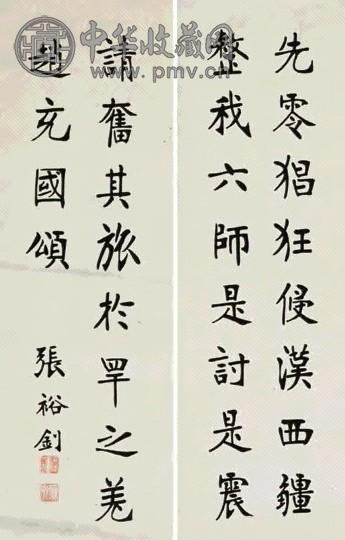 中华收藏网
www.pmv.cn
先零猖狂侵漢西疆
整我六師是討是震
請奮其旅於罕之羌
充國頌
張裕釗